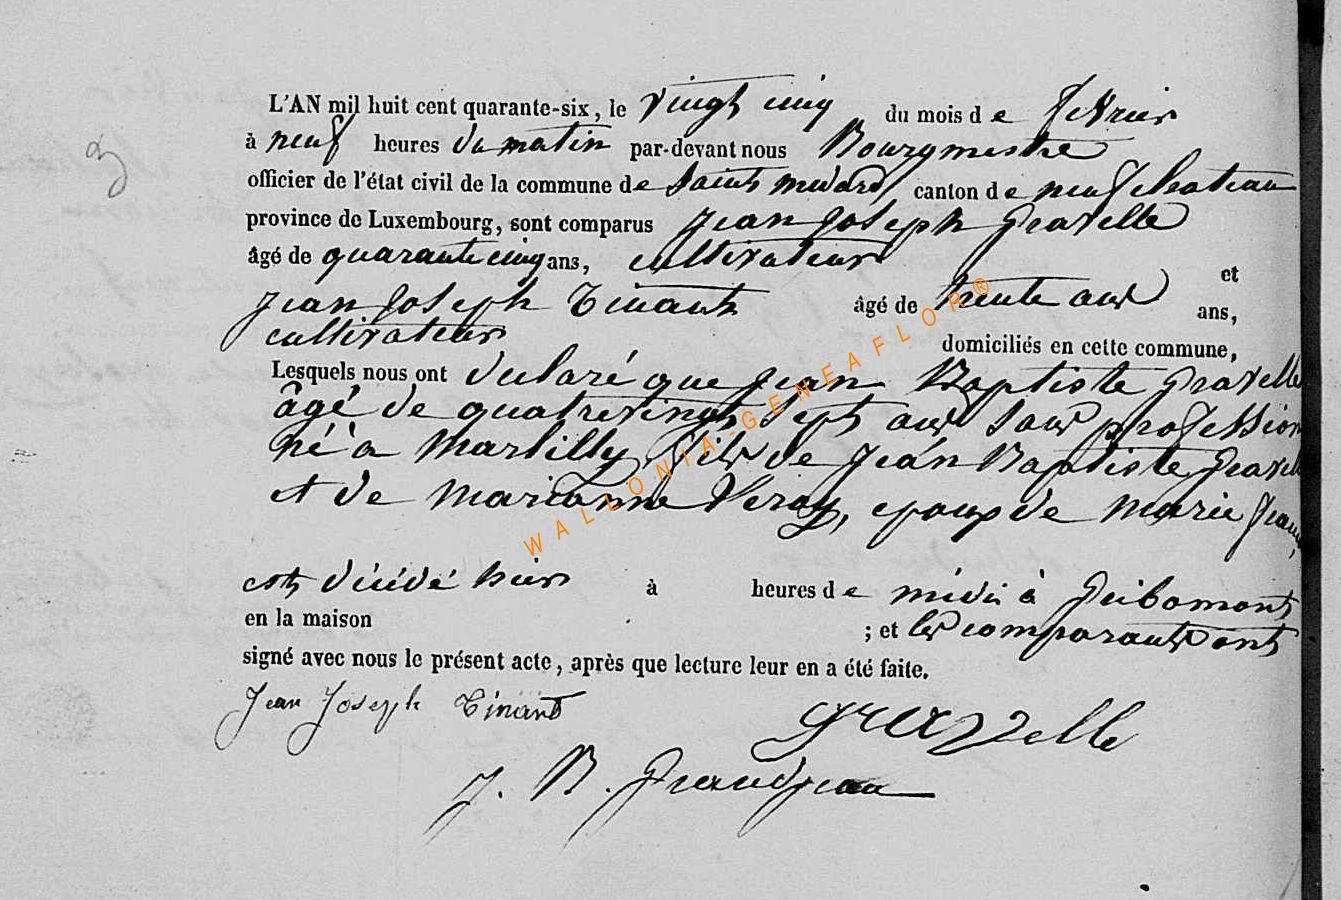 L'AN mil huit cent quarante-six, le vingt cinq du mois de fevrier
à neuf heures du matin par-devant nous Bourgmestre
officier de l'état civil de la commune de Saint medard, canton de neufchateau
province de Luxembourg, sont comparus jean joseph gravelle
âgé de quarante cinq ans, cultivateur et
jean joseph Tinant âgé de trente ans,
cultivateur domiciliés en cette commune,
Lesquels nous ont declaré que jean Baptiste gravelle
âgé de quatrevingt sept ans sans profession
né à martilly, fils de jean Baptiste gravelle
et de marianne epoux de marie jeanne,
est décédé hier à heures de midi à gribomont
en la maison ; et les comparants ont
signé avec nous le présent acte, après que lecture leur en a été faite.
Jean Joseph Tinant gravelle
J. B. Grandjean
3
WALLONIA-GENEAFLOR®